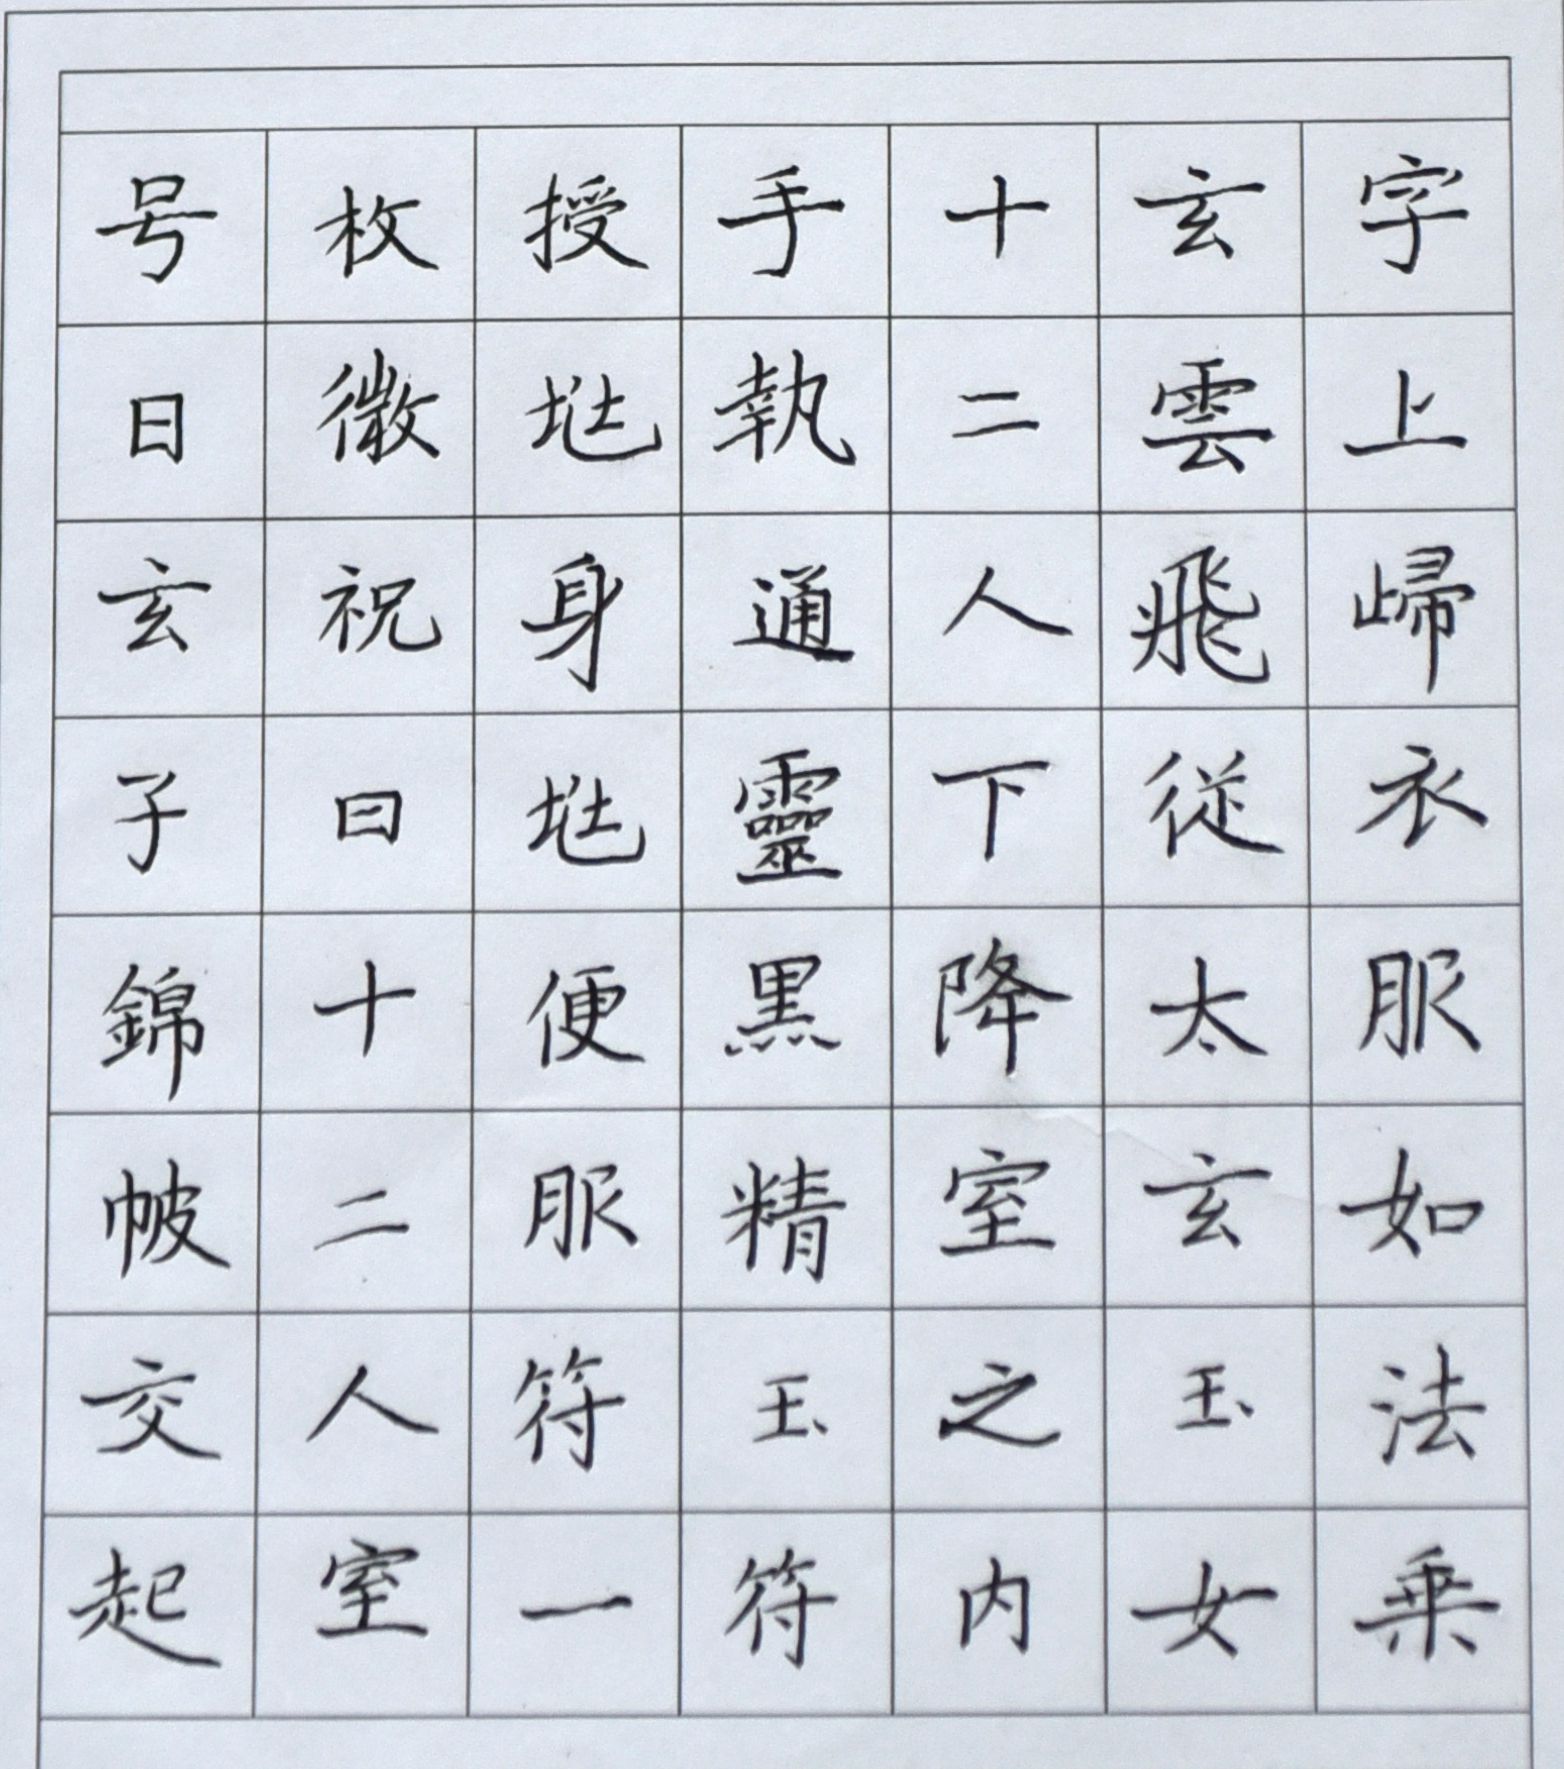 字上㱕衣服如法乗
玄雲飛従太玄玉女
十二人下降室之内
手執通靈黒精玉符
授兆身兆便服符一
枚微祝曰十二人室
号日玄子錦帔交起